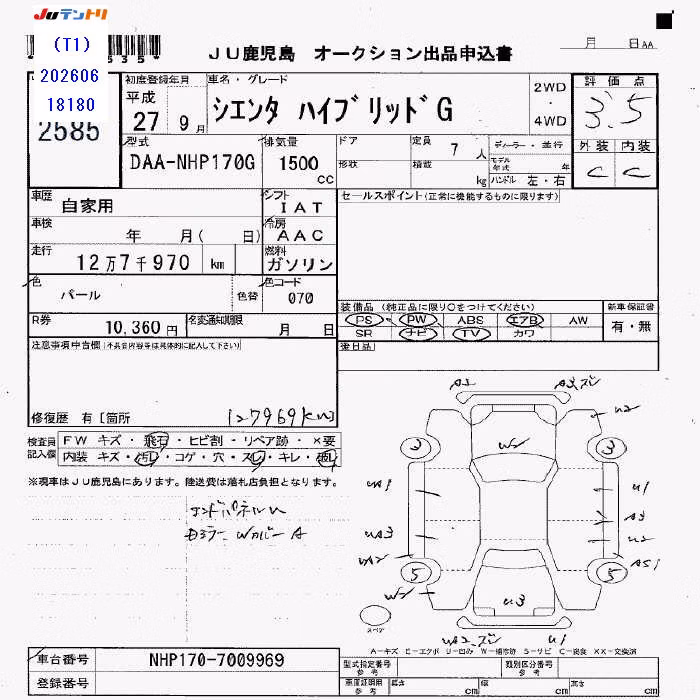 JUテントリ
(T1)
202606
18180
2585
JU鹿児島 オークション出品申込書
月 日 AA
初度登録年月
平成
27 9月
車名・グレード
シエンタ ハイブリッドG
2WD
・
4WD
評価点
3.5
外装 内装
C C
型式
DAA-NHP170G
排気量
1500
cc
ドア
形状
定員 7 人
積載 kg
ディーラー・並行
モデル年式 年
ハンドル 左・右
車歴
自家用
シフト
IAT
セールスポイント(正常に機能するものに限ります)
車検
年 月( 日)
冷房
AAC
走行
12万7千970 km
燃料
ガソリン
色
パール
色替
色コード
070
装備品 (純正品に限り○をつけてください)
PS PW ABS エアB AW
SR ナビ TV カワ
新車保証書
有・無
R券
10,360円
名変通知期限
月 日
後日品
注意事項申告欄(不具合内容等は具体的に記入して下さい)
修復歴 有[箇所
127969km]
検査員記入欄
FW キズ・飛石・ヒビ割・リペア跡・×要
内装 キズ・汚れ・コゲ・穴・スレ・キレ・破レ
※現車はJU鹿児島にあります。陸送費は落札店負担となります。
エンドパネルU
DミラーWカバーA
A2
A3.ズレ
U2
W2
3
3
UA1
U1
UA3
A3
U2
UA2
AS1
5
5
W2
U3
スペア
UA2.ズレ
U1
A-キズ E-エクボ U-凹み W-補修跡 S-サビ C-腐食 XX-交換済
車台番号
NHP170-7009969
登録番号
型式指定番号
参考
類別区分番号
参考
車庫証明用
参考
長さ cm
幅 cm
高さ cm